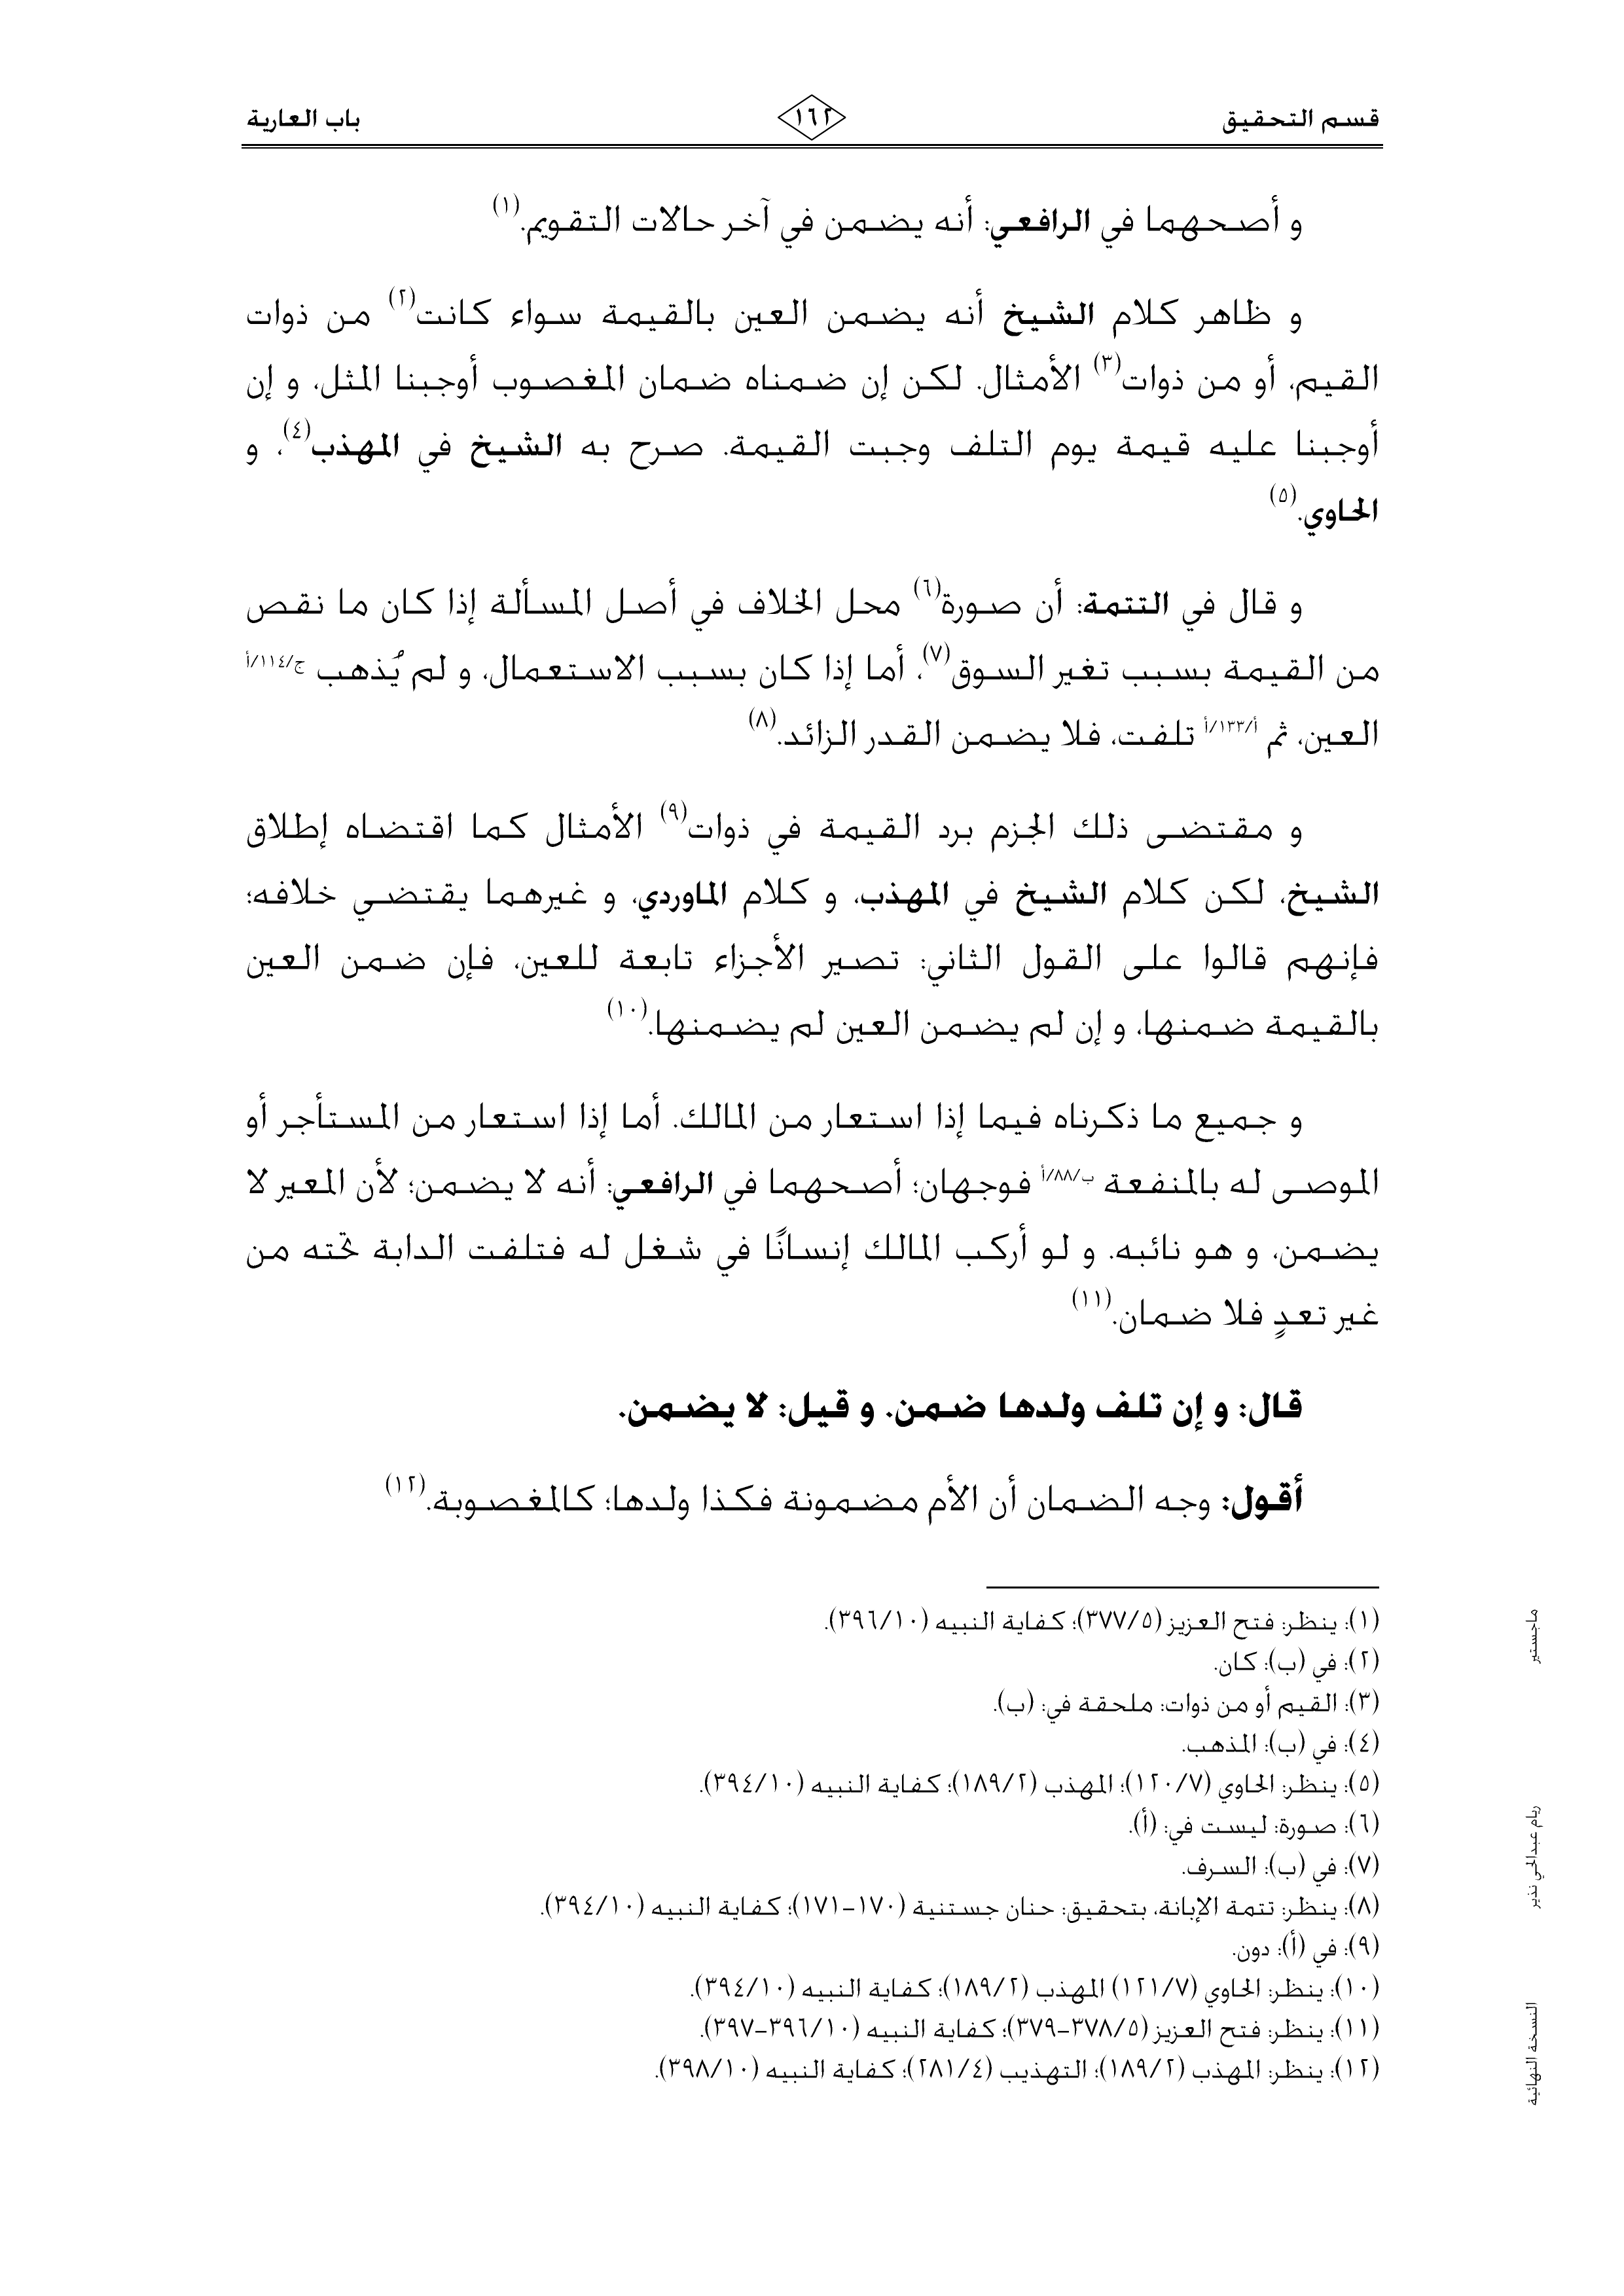 قسم التحقيق
١٦٢
باب العارية
و أصحهما في الرافعي: أنه يضمن في آخر حالات التقويم.(١)
و ظاهر كلام الشيخ أنه يضمن العين بالقيمة سواء كانت(٢) من ذوات
القيم، أو من ذوات(٣) الأمثال. لكن إن ضمناه ضمان المغصوب أوجبنا المثل، و إن
أوجبنا عليه قيمة يوم التلف وجبت القيمة. صرح به الشيخ في المهذب(٤)، و
الحاوي.(٥)
و قال في التتمة: أن صورة(٦) محل الخلاف في أصل المسألة إذا كان ما نقص
من القيمة بسبب تغير السوق(٧)، أما إذا كان بسبب الاستعمال، و لم يُذهب ج/١١٤/أ
العين، ثم أ/١٣٣/أ تلفت، فلا يضمن القدر الزائد.(٨)
و مقتضى ذلك الجزم برد القيمة في ذوات(٩) الأمثال كما اقتضاه إطلاق
الشيخ، لكن كلام الشيخ في المهذب، و كلام الماوردي، و غيرهما يقتضي خلافه؛
فإنهم قالوا على القول الثاني: تصير الأجزاء تابعة للعين، فإن ضمن العين
بالقيمة ضمنها، و إن لم يضمن العين لم يضمنها.(١٠)
و جميع ما ذكرناه فيما إذا استعار من المالك. أما إذا استعار من المستأجر أو
الموصى له بالمنفعة ب/٨٨/أ فوجهان؛ أصحهما في الرافعي: أنه لا يضمن؛ لأن المعير لا
يضمن، و هو نائبه. و لو أركب المالك إنسانًا في شغل له فتلفت الدابة تحته من
غير تعدٍ فلا ضمان.(١١)
قال: و إن تلف ولدها ضمن. و قيل: لا يضمن.
أقول: وجه الضمان أن الأم مضمونة فكذا ولدها؛ كالمغصوبة.(١٢)
(١): ينظر: فتح العزيز (٣٧٧/٥)؛ كفاية النبيه (٣٩٦/١٠).
(٢): في (ب): كان.
(٣): القيم أو من ذوات: ملحقة في: (ب).
(٤): في (ب): المذهب.
(٥): ينظر: الحاوي (١٢٠/٧)؛ المهذب (١٨٩/٢)؛ كفاية النبيه (٣٩٤/١٠).
(٦): صورة: ليست في: (أ).
(٧): في (ب): السرف.
(٨): ينظر: تتمة الإبانة، بتحقيق: حنان جستنية (١٧٠-١٧١)؛ كفاية النبيه (٣٩٤/١٠).
(٩): في (أ): دون.
(١٠): ينظر: الحاوي (١٢١/٧) المهذب (١٨٩/٢)؛ كفاية النبيه (٣٩٤/١٠).
(١١): ينظر: فتح العزيز (٣٧٨/٥-٣٧٩)؛ كفاية النبيه (٣٩٦/١٠-٣٩٧).
(١٢): ينظر: المهذب (١٨٩/٢)؛ التهذيب (٢٨١/٤)؛ كفاية النبيه (٣٩٨/١٠).
ماجستير
ريام عبدالحي نذير
النسخة النهائية